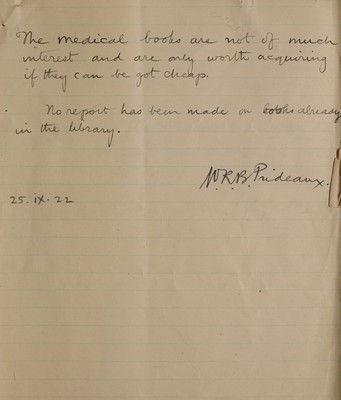 The medical books are not of much
interest and are only worth acquiring
if they can be got cheap.
No report has been made on books already
in the library.
W.R.B. Prideaux.
25. ix. 22